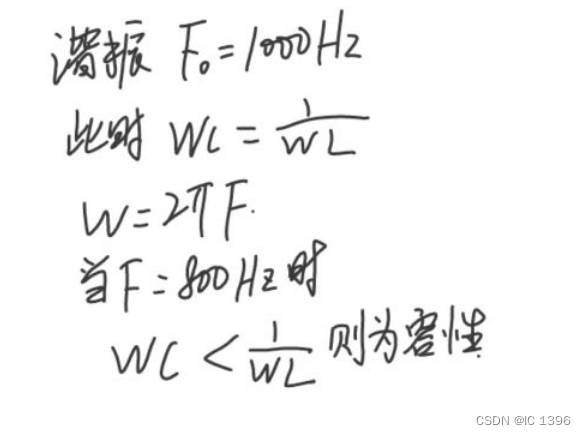 谐振 F₀=1000Hz
此时 WC = 1/WL
W=2πF.
当F=800Hz时
WC < 1/WL 则为容性
CSDN @IC 1396